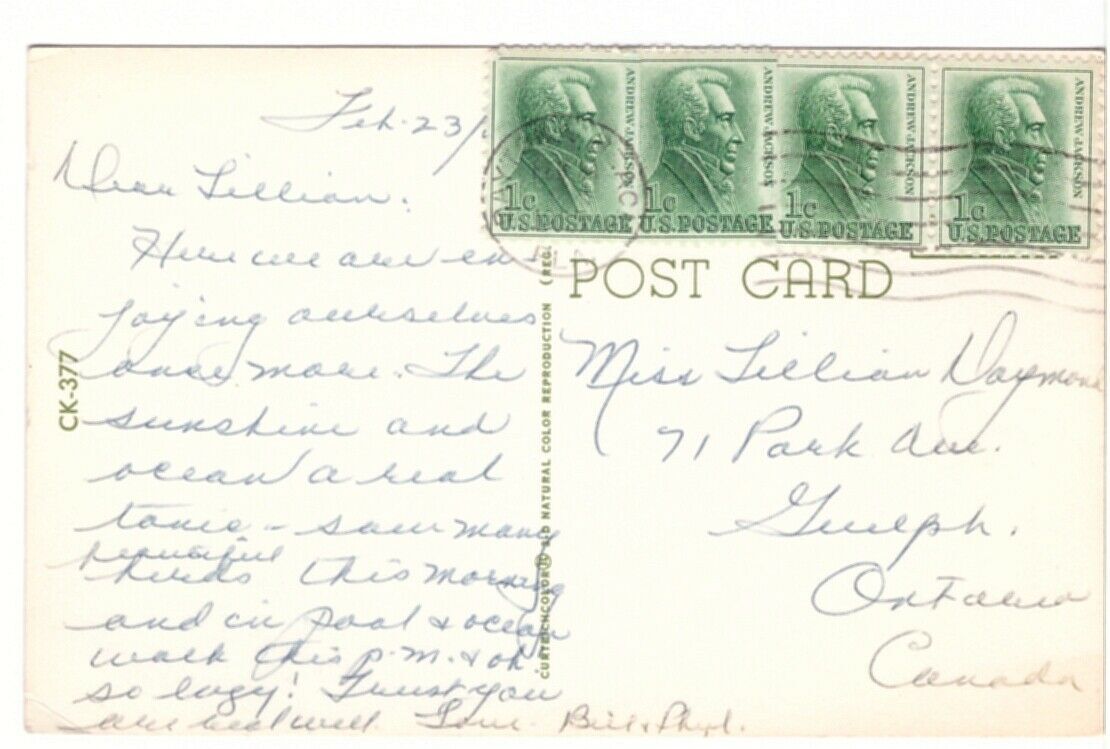 Feb. 23/
Dear Lillian.
Here we are en-
joying ourselves
once more. The
sunshine and
ocean a real
tonic - saw many
beautiful
birds this morning
and in pool & ocean
walk this p.m. & oh
so lazy! Trust you
are well. Love Bill & Phyl.
CK-377
CURTEICHCOLOR® 3-D NATURAL COLOR REPRODUCTION (REG.
ANDREW JACKSON
1c
U.S. POSTAGE
ANDREW JACKSON
1c
U.S. POSTAGE
ANDREW JACKSON
1c
U.S. POSTAGE
ANDREW JACKSON
1c
U.S. POSTAGE
POST CARD
Miss Lillian Daymond
71 Park Ave.
Guelph.
Ontario
Canada